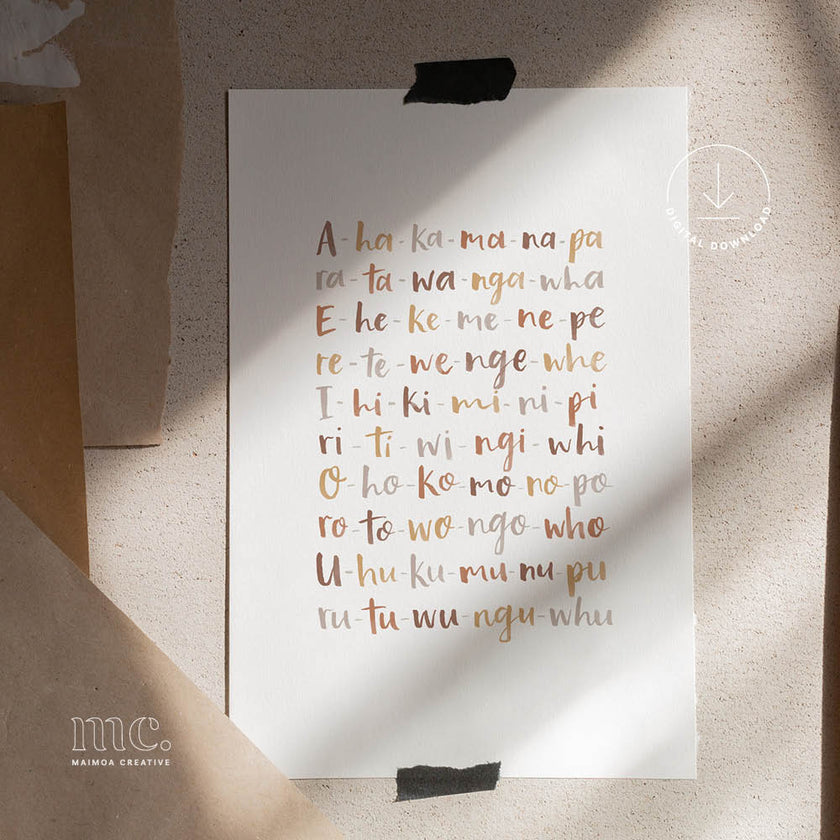 A-ha-ka-ma-na-pa
ra-ta-wa-nga-wha
E-he-ke-me-ne-pe
re-te-we-nge-whe
I-hi-ki-mi-ni-pi
ri-ti-wi-ngi-whi
O-ho-ko-mo-no-po
ro-to-wo-ngo-who
U-hu-ku-mu-nu-pu
ru-tu-wu-ngu-whu
DIGITAL DOWNLOAD
mc.
MAIMOA CREATIVE